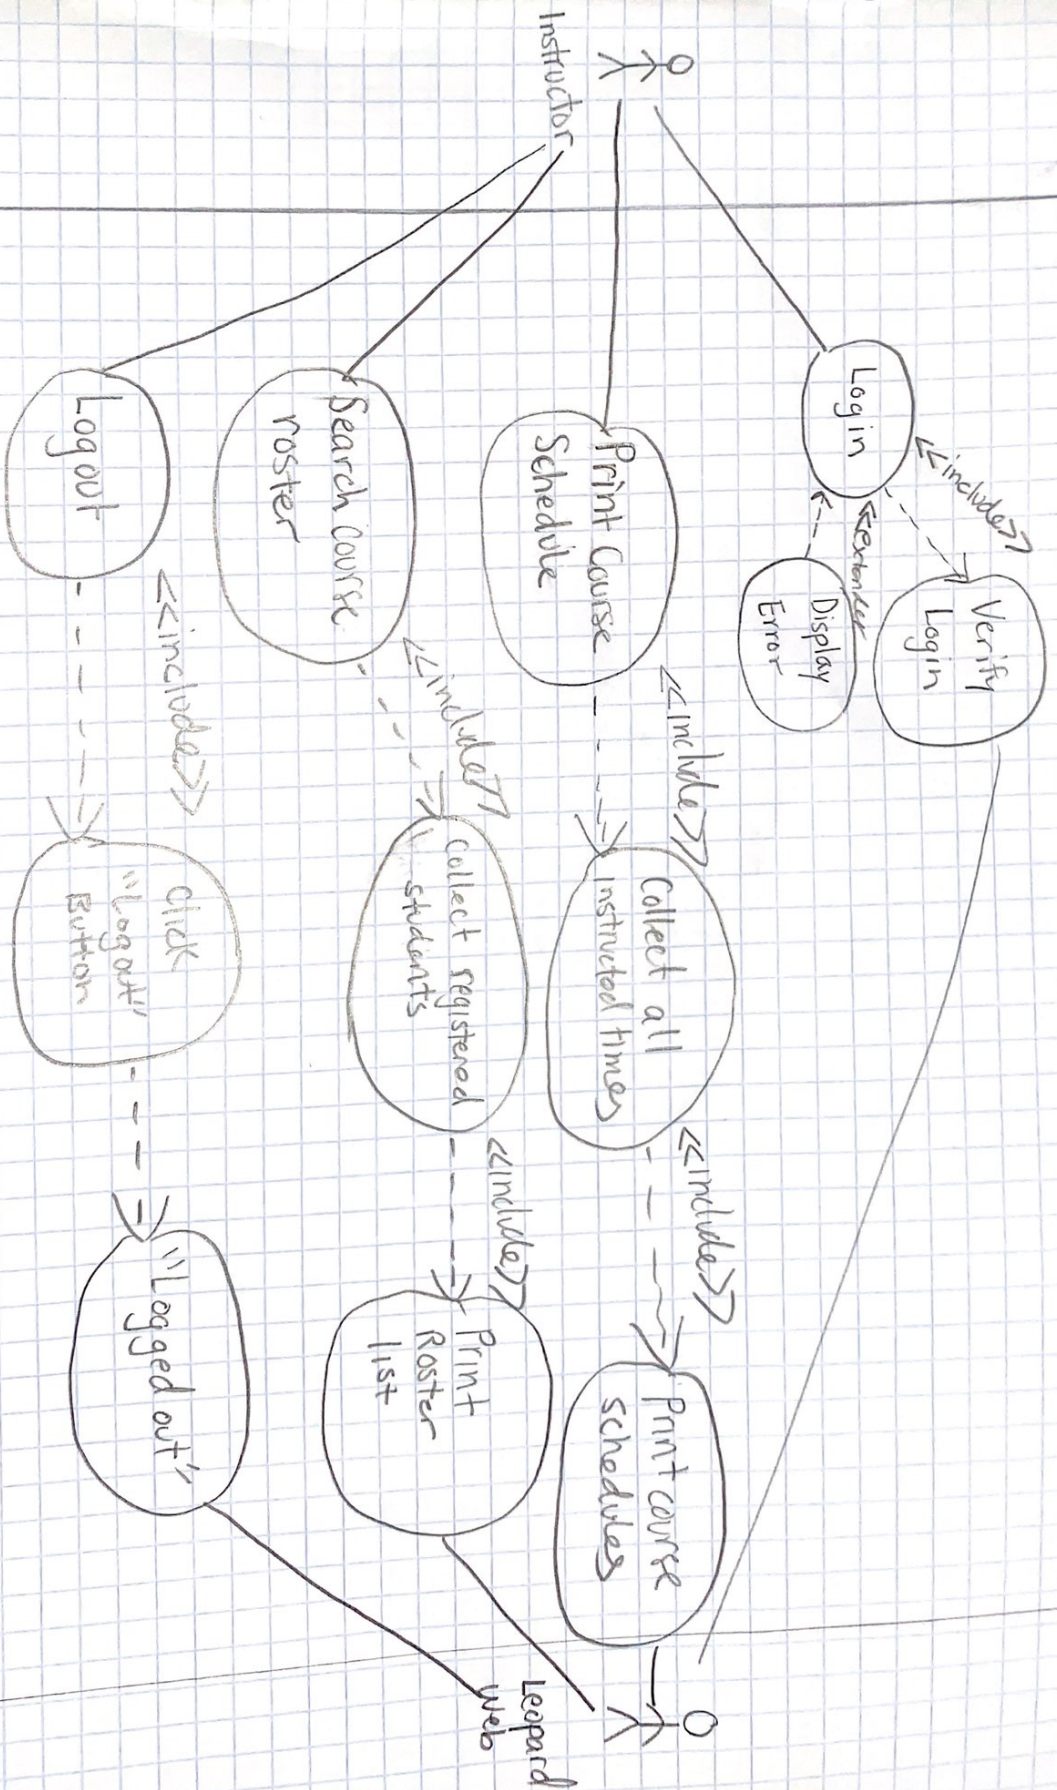 Instructor
Login
<<include>>
Verify
Login
Display
Error
Print Course
Schedule
<<include>>
Collect all
instructed times
<<include>>
Print course
schedules
Search Course
roster
<<include>>
collect registered
students
<<include>>
Print
Roster
list
Logout
<<include>>
Click
"Logout"
Button
"Logged out"
Leopard
Web